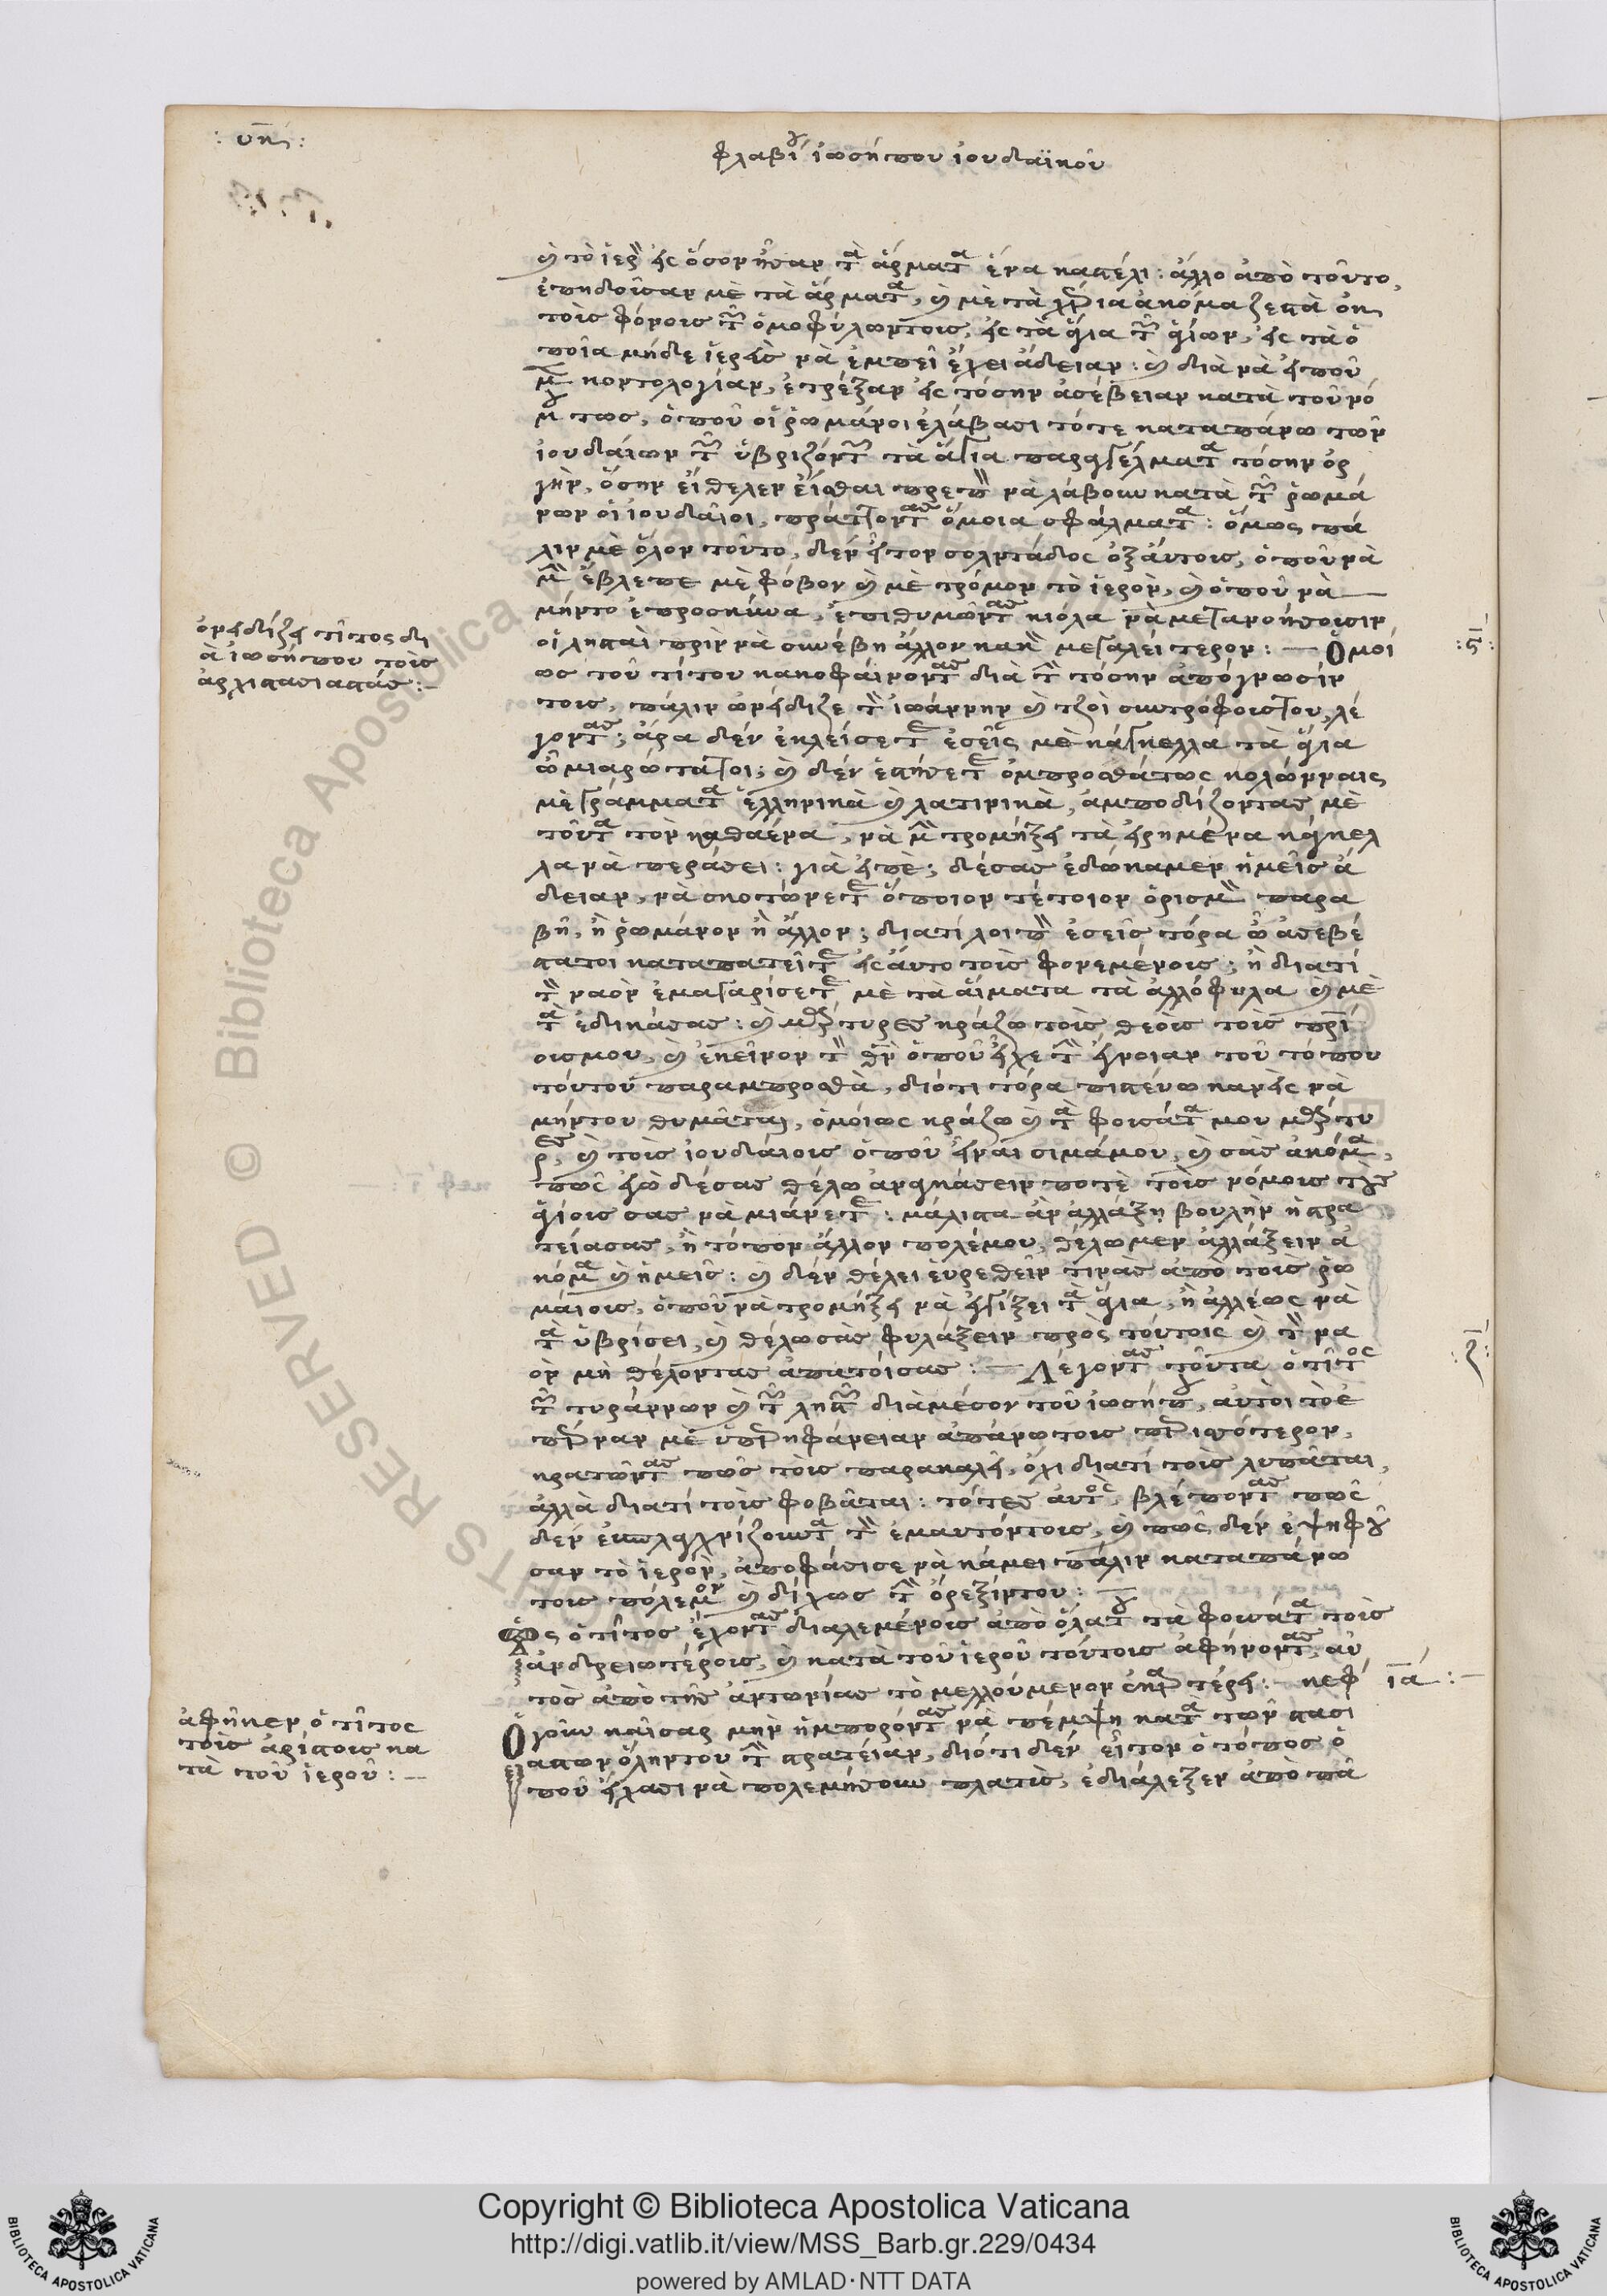 : υη :
φλαβίου ἰωσήπου ἰουδαϊκοῦ
καὶ τὸ ἱερὸν εἰς ὅσον ἦσαν τὰ ἄρματα ἕνα καστέλι : ἄλλο ἀπὸ τοῦτο,
ἐπηδοῦσαν μὲ τὰ ἄρματα, καὶ μὲ τὰ χέρια ἀκόμα ζεστὰ ἐκ
τοὶς φόνοις τῶν ὁμοφύλωντοις, εἰς τὰ ἅγια τῶν ἁγίων, εἰς τὰ ὁ
ποῖα μήδε ἱερεὺς νὰ ἐμπεῖ ἔχει ἄδειαν : καὶ διὰ νὰ εἰποῦ
μεν κοντολογίαν, ἐτρέξαν εἰς τόσην ἀσέβειαν κατὰ τοῦ νό
μου τως, ὁποῦ οἱ ῥωμάνοι ἐλάβασι τότε καταπάνω τῶν
ἰουδαίων τῶν ὑβριζόντων τὰ ἅγια παραγγέλματα τόσην ὀρ
γὴν, ὅσην εἴθελεν εἶσθαι πρεπὸν νὰ λάβουν κατὰ τῶν ῥωμά
νων οἱ ἰουδαῖοι, πράττοντας ὅμοια σφάλματα : ὅμως πά
λιν μὲ ὅλον τοῦτο, δὲν εἶτον σολντάδος ἐξ αὐτοις, ὁποῦ νὰ
μὴν ἔβλεπε μὲ φόβον καὶ μὲ τρόμον τὸ ἱερὸν, καὶ ὁποῦ νὰ
μήντο ἐπροσκύνα, ἐπιθυμῶντας κιόλα νὰ μετανοήσουσιν
οἱ λησταὶ πρὶν νὰ συνέβη ἄλλον κακὸν μεγαλείτερον : — Ὁμοί
: ς :
ως τοῦ τίτου κακοφαίνοντας διὰ τὴν τόσην ἀπόγνωσίν
τοις, πάλιν ὠνείδιζε τὸν ἰωάννην καὶ τζοὶ συντρόφοιςτου, λέ
γοντας ; ἄρα δὲν ἐκλείσετε ἐσεῖς μὲ κάγκελλα τὰ ἅγια
ὦ μιαρώτατοι ; καὶ δὲν ἐστήσετε ὀμπροσθάτως κολώνναις
μὲ γράμματα ἑλληνικὰ καὶ λατινικὰ, ἀμποδίζοντας μὲ
τοῦτα τὸν καθαένα, νὰ μὴν τρομήξει τὰ εἰρημένα κάγκελ
λα νὰ περάσει : γιὰ εἰπὲ ; δέσας ἐδώκαμεν ἡμεῖς ἄ
δειαν, νὰ σκοτώνετε ὅποιον τέτοιον ὁρισμὸν παρα
βῆ, ἢ ῥωμάνον ἢ ἄλλον ; διατί λοιπὸν ἐσεῖς τόρα ὦ ἀσεβέ
στατοι καταπατεῖτε εἰς αὐτο τοὶς φονεμένοις ; ἢ διατί
τὸν ναὸν ἐμαγαρίσετε μὲ τὰ αἵματα τὰ ἀλλόφυλα καὶ μὲ
τὰ ἐδικάσας : καὶ μάρτυρες κράζω τοὶς θεοὶς τοὶς πατρί
οισμου, καὶ ἐκεῖνον τὸν θεὸν ὁποῦ εἶχε τὴν ἔννοιαν τοῦ τόπου
τούτου παραμπροσθὰ, διότι τόρα πιστεύω κανεὶς νὰ
μήντου θυμᾶται, ὁμοίως κράζω καὶ τὰ φουσάτα μου μάρτυ
ρες, καὶ τοὶς ἰουδαίοις ὁποῦ εἶναι σιμάμου, καὶ σᾶς ἀκόμα,
πῶς ἐγὼ δέσας θέλω ἀναγκάσειν ποτὲ τοὶς νόμοις τοὺς
ἁγίοις σας νὰ μιάνετε : μάλιστα ἂν ἀλλάξῃ βουλὴν ἡ στρα
τείασας, ἢ τόπον ἄλλον πολέμου, θέλωμεν ἀλλάξειν ἀ
κόμα καὶ ἡμεῖς : καὶ δὲν θέλει εὑρεθεῖν τινὰς ἀπὸ τοὶς ῥω
μάνοις, ὁποῦ νὰ τρομήξει νὰ ἐγγίξει τὰ ἅγια, ἢ ἀλλέως νὰ
τὰ ὑβρίσει, καὶ θέλωσᾶς φυλάξειν πρὸς τούτοις καὶ τὸν να
ὸν μὴ θέλοντας ἀπατοίσας : — Λέγοντας τοῦτα ὁ τίτος
: ζ :
τῶν τυράννων καὶ τῶν ληστῶν διὰ μέσου τοῦ ἰωσήπου, αὐτοὶ τὸ ἐ
πῆραν μὲ ὑπερηφάνειαν ἀπάνωτοις περισσότερον,
κρατῶντας πῶς τοὶς παρακαλεῖ, ὄχι διατί τοὶς λυπᾶται,
ἀλλὰ διατί τοὶς φοβᾶται : τότες αὐτὸς, βλέποντας πῶς
δὲν εὐσπλαχνίζουντα τὸν ἐμαυτόντοις, καὶ πῶς δὲν ἐψηφοῦ
σαν τὸ ἱερὸν, ἀποφάσισε νὰ κάμει πάλιν καταπάνω
τοις πόλεμον καὶ δίχως τὴν ὄρεξίντου : —
Πῶς ὁ τίτος ἔχοντας διαλεμένοις ἀπὸ ὅλατου τὰ φουσάτα τοὶς
ἀνδρειωτέροις, καὶ κατὰ τοῦ ἱεροῦ τούτοις ἀφήνοντας, αὐ
τὸς ἀπὸ τῆς ἀντωνίας τὸ μελλούμενον ἐκαρτέρει : κεφ ιά : —
Ὁ γοῦν καῖσαρ μὴν ἠμπορόντας νὰ πέμψη κατὰ τῶν στασι
αστῶν ὅληντου τὴν στρατείαν, διότι δὲν εἶτον ὁ τόπος ὁ
ποῦ εἴχασι νὰ πολεμήσουν πλατὺς, ἐδιάλεξεν ἀπὸ πᾶ
ὀνειδίζει τίτος δι
ὰ ἰωσήπου τοὶς
ἀρχιστασιαστάς : —
ἀφῆκεν ὁ τίτος
τοὶς ἀρίστοις κα
τὰ τοῦ ἱεροῦ : —
Copyright © Biblioteca Apostolica Vaticana
http://digi.vatlib.it/view/MSS_Barb.gr.229/0434
powered by AMLAD·NTT DATA
BIBLIOTECA APOSTOLICA VATICANA
BIBLIOTECA APOSTOLICA VATICANA